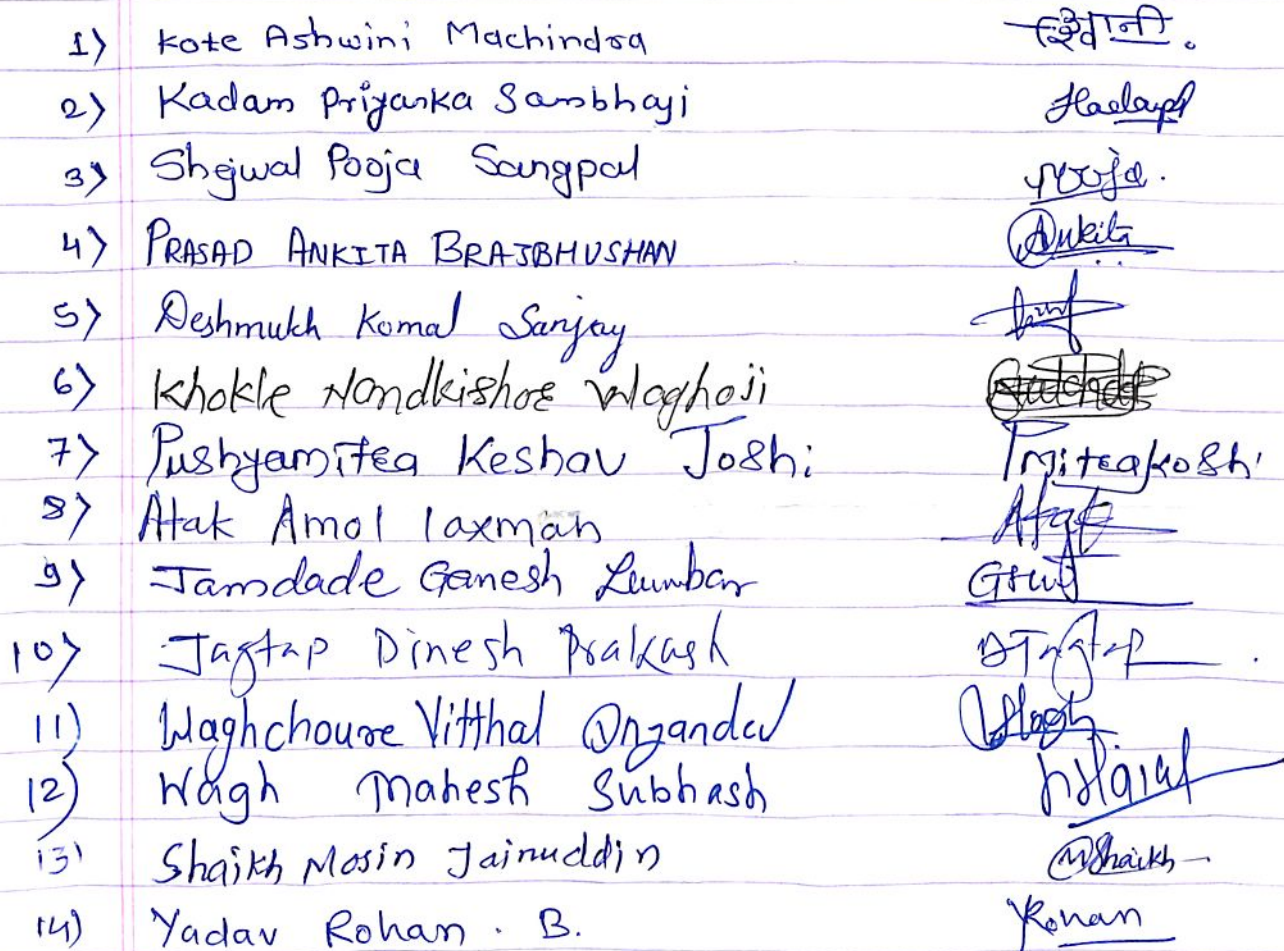 1) Kote Ashwini Machindra
2) Kadam Priyanka Sambhaji
3) Shejwal Pooja Sangpal Pooja.
4) PRASAD ANKITA BRAJBHUSHAN Ankita
5) Deshmukh Komal Sanjay
6) Khokle Nandkishor Waghoji
7) Pushyamitra Keshav Joshi
8) Atak Amol laxman Atak
9) Jamdade Ganesh Limbaji
10) Jagtap Dinesh Prakash DJagtap
11) Waghchoure Vitthal
12) Wagh Mahesh Subhash
13) Shaikh Mosin Jainuddin MShaikh
14) Yadav Rohan. B. YRohan